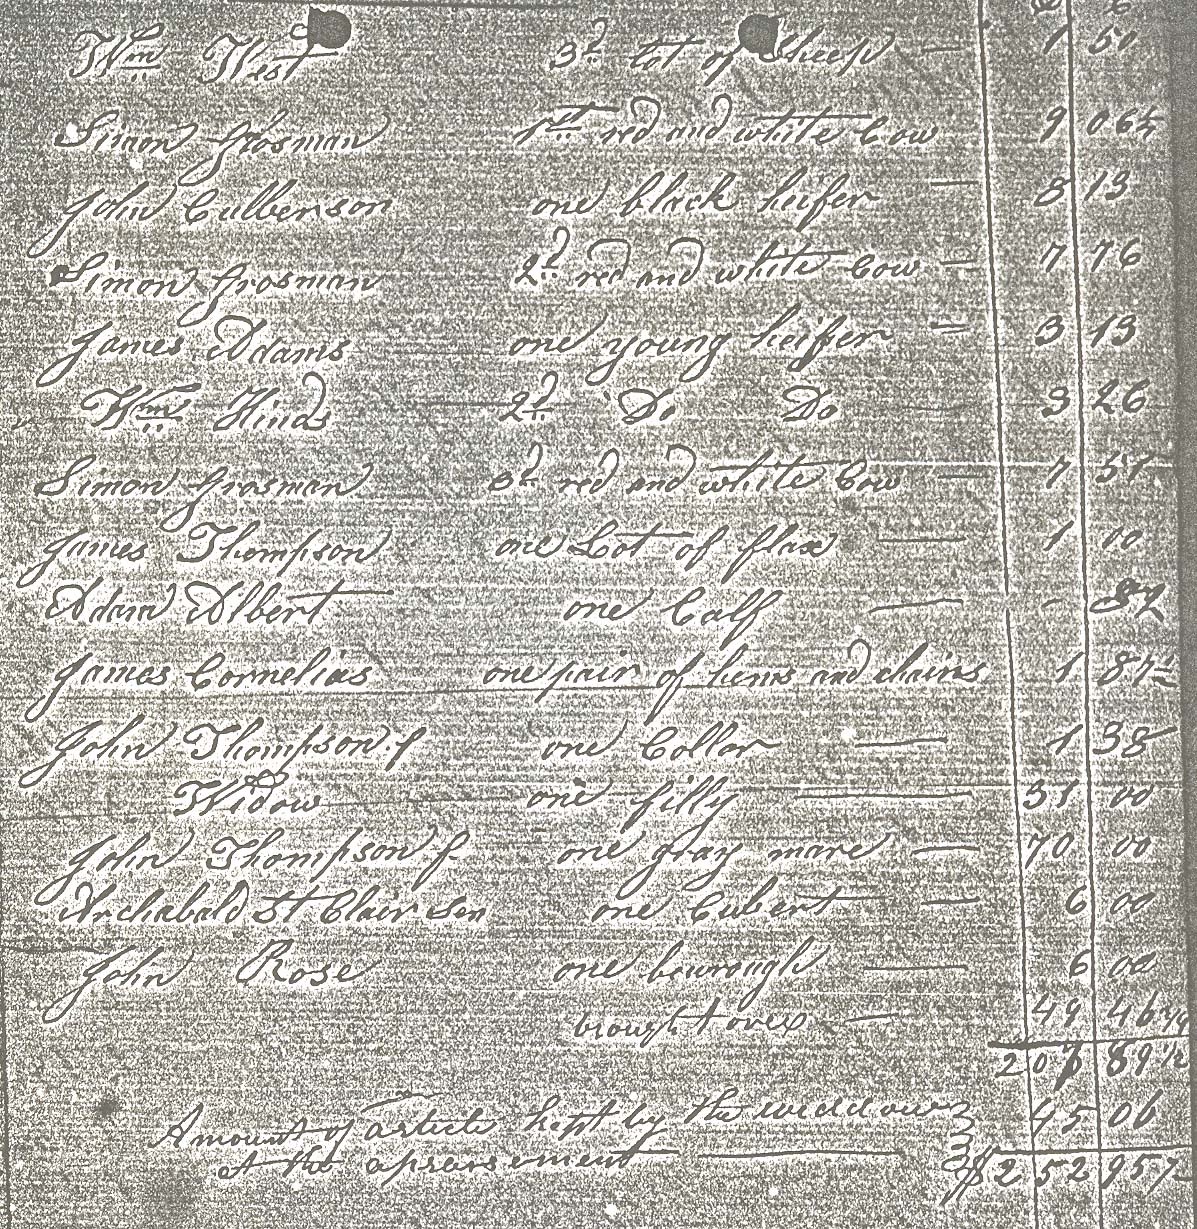 Wm West 3d lot of Sheep 1 50
Simon Grosman 1st red and white Cow 9 06¼
John Culberson one black heifer 8 13
Simon Grosman 2d red and white Cow 7 76
James Adams one young heifer 3 13
Wm Hinds 2d Do Do 3 26
Simon Grosman 3d red and white Cow 7 51
James Thompson one Lot of flax 1 00
Adam Albert one Calf - 82
James Cornelias one pair of hems and chains 1 87½
John Thompson f one Collar 1 38
Widow one filly 31 00
John Thompson f one gray mare 70 00
Archabald St Clair Sen one Cubert 6 00
John Rose one bewrough 6 00
brought over 49 46
207 89½
Amount of articles kept by the widdow 45 06
at the apraisement $ 252 95½